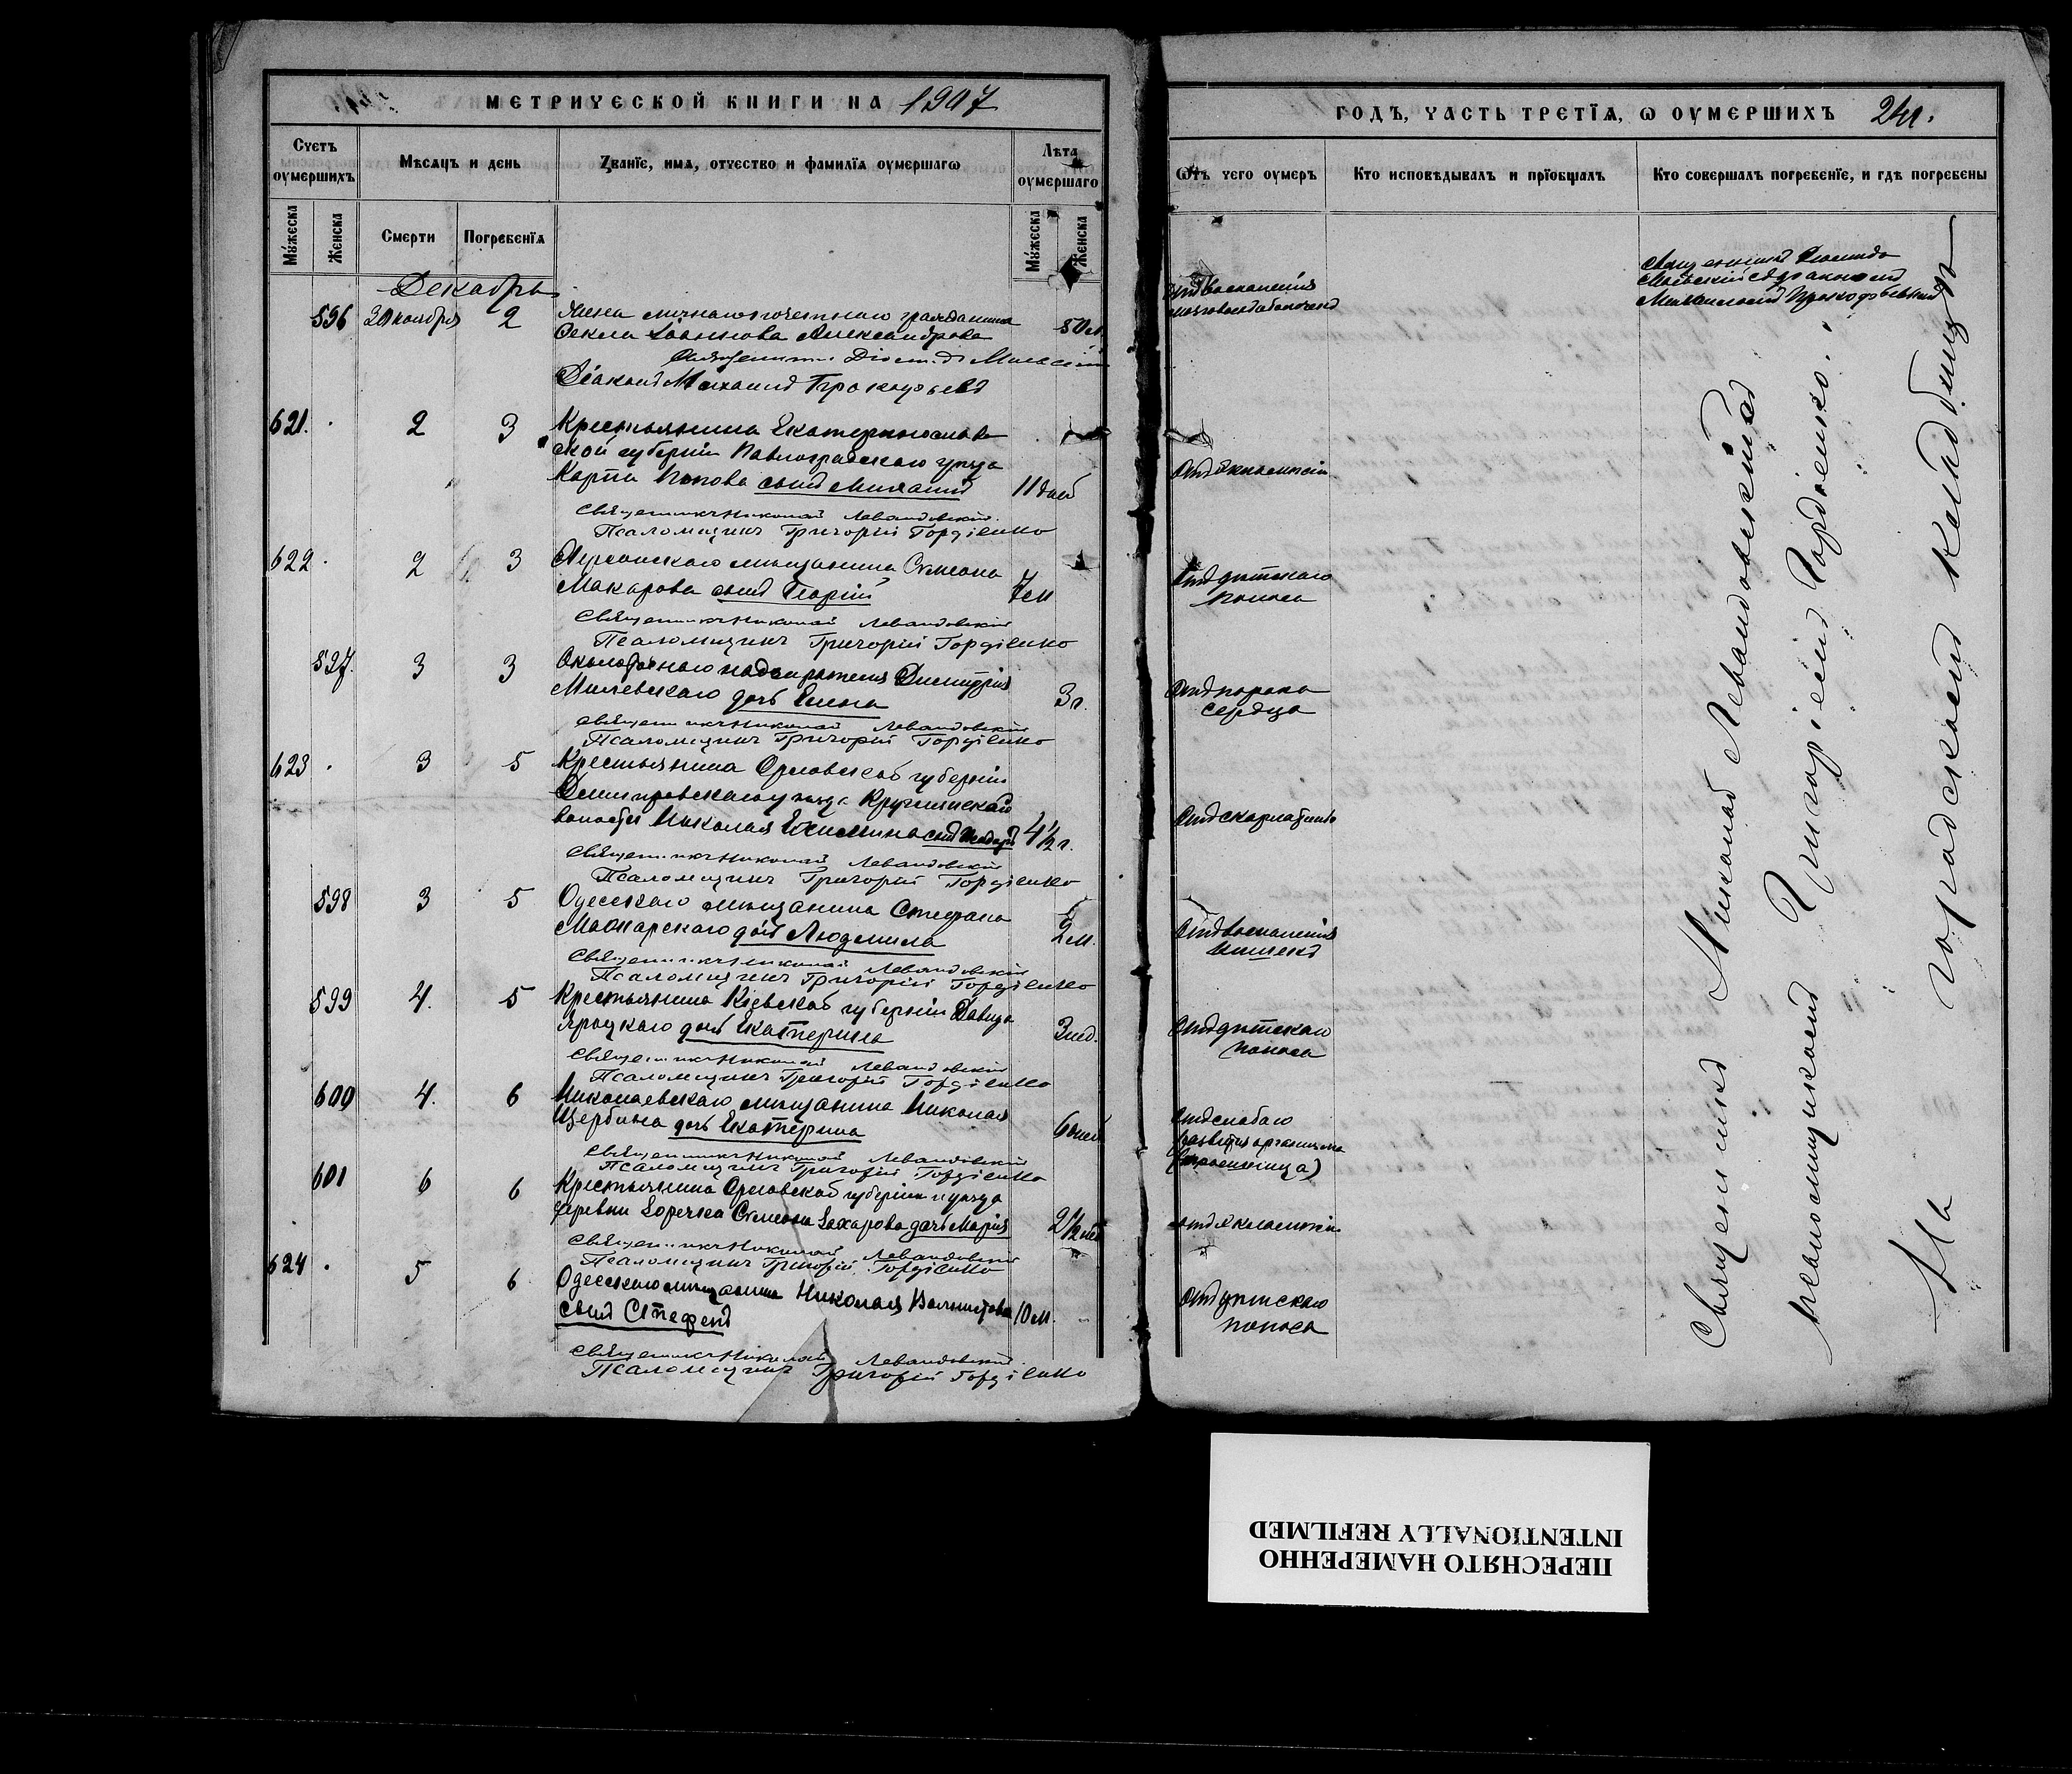 МЕТРИЧЕСКОЙ КНИГИ НА 1907
Счетъ оумершихъ
Мѣсяцъ и день
Званїе, имя, отчество и фамилїя оумершагѡ
Лѣта оумершаго
Мꙋжеска
Женска
Смерти
Погребенїя
Мꙋжеска
Женска
Декабрь
596 30 ноября 2 Жена личнаго почетнаго гражданина
Текла Іоаннова Александрова 50 л.
Діаконъ Михаилъ Прокофьевъ
621. 2 3 Крестьянина Екатеринослав
ской губерніи Павлоградскаго уѣзда
Карпа Попова сынъ Михаилъ 11 дней
Священникъ Николай Левандовскій
Псаломщикъ Григорій Гордіенко
622 2 3 Херсонскаго мѣщанина Симеона
Макарова сынъ Георгій 7 м
Священникъ Николай Левандовскій
Псаломщикъ Григорій Гордіенко
597. 3 3 Околоточнаго надзирателя Димитрія
Милевскаго дочь Елена 3 г.
Священникъ Николай Левандовскій
Псаломщикъ Григорій Гордіенко
623 3 5 Крестьянина Орловской губерніи
Дмитровскаго уѣзда Круглинской
волости Николая сынъ Ѳеодоръ 4½ г.
Священникъ Николай Левандовскій
Псаломщикъ Григорій Гордіенко
598 3 5 Одесскаго мѣщанина Стефана
дочь Людмила 2 м.
Священникъ Николай Левандовскій
Псаломщикъ Григорій Гордіенко
599 4. 5 Крестьянина Кіевской губерніи Давида
Яроцкаго дочь Екатерина 3 нед.
Священникъ Николай Левандовскій
Псаломщикъ Григорій Гордіенко
600 4. 6 Николаевскаго мѣщанина Николая
Щербина дочь Екатерина 6 дней
Священникъ Николай Левандовскій
Псаломщикъ Григорій Гордіенко
601 6 6 Крестьянина Орловской губерніи и уѣзда
деревни Симеона Захарова дочь Марія 2½ нед
Священникъ Николай Левандовскій
Псаломщикъ Григорій Гордіенко
624 5 6 Одесскаго мѣщанина Николая
сынъ Стефанъ 10 м.
Священникъ Николай Левандовскій
Псаломщикъ Григорій Гордіенко
ГОДЪ, ЧАСТЬ ТРЕТЇЯ, Ѡ ОУМЕРШИХЪ
Ѿъ чего оумеръ
Кто исповѣдывалъ и прїобщалъ
Кто совершалъ погребенїе, и гдѣ погребены
Отъ воспаленія
мозговыхъ оболочекъ
Отъ эклампсіи
Отъ дѣтскаго
поноса
Отъ порока
сердца
Отъ скарлатины
Отъ воспаленія
кишекъ
Отъ дѣтскаго
поноса
Отъ слабаго
развитія организма
отъ эклампсіи
Отъ дѣтскаго
поноса
Священникъ Николай Левандовскій съ
псаломщикомъ Григоріемъ Гордіенко.
На городскомъ кладбищѣ
ПЕРЕСНЯТО НАМЕРЕННО
INTENTIONALLY REFILMED